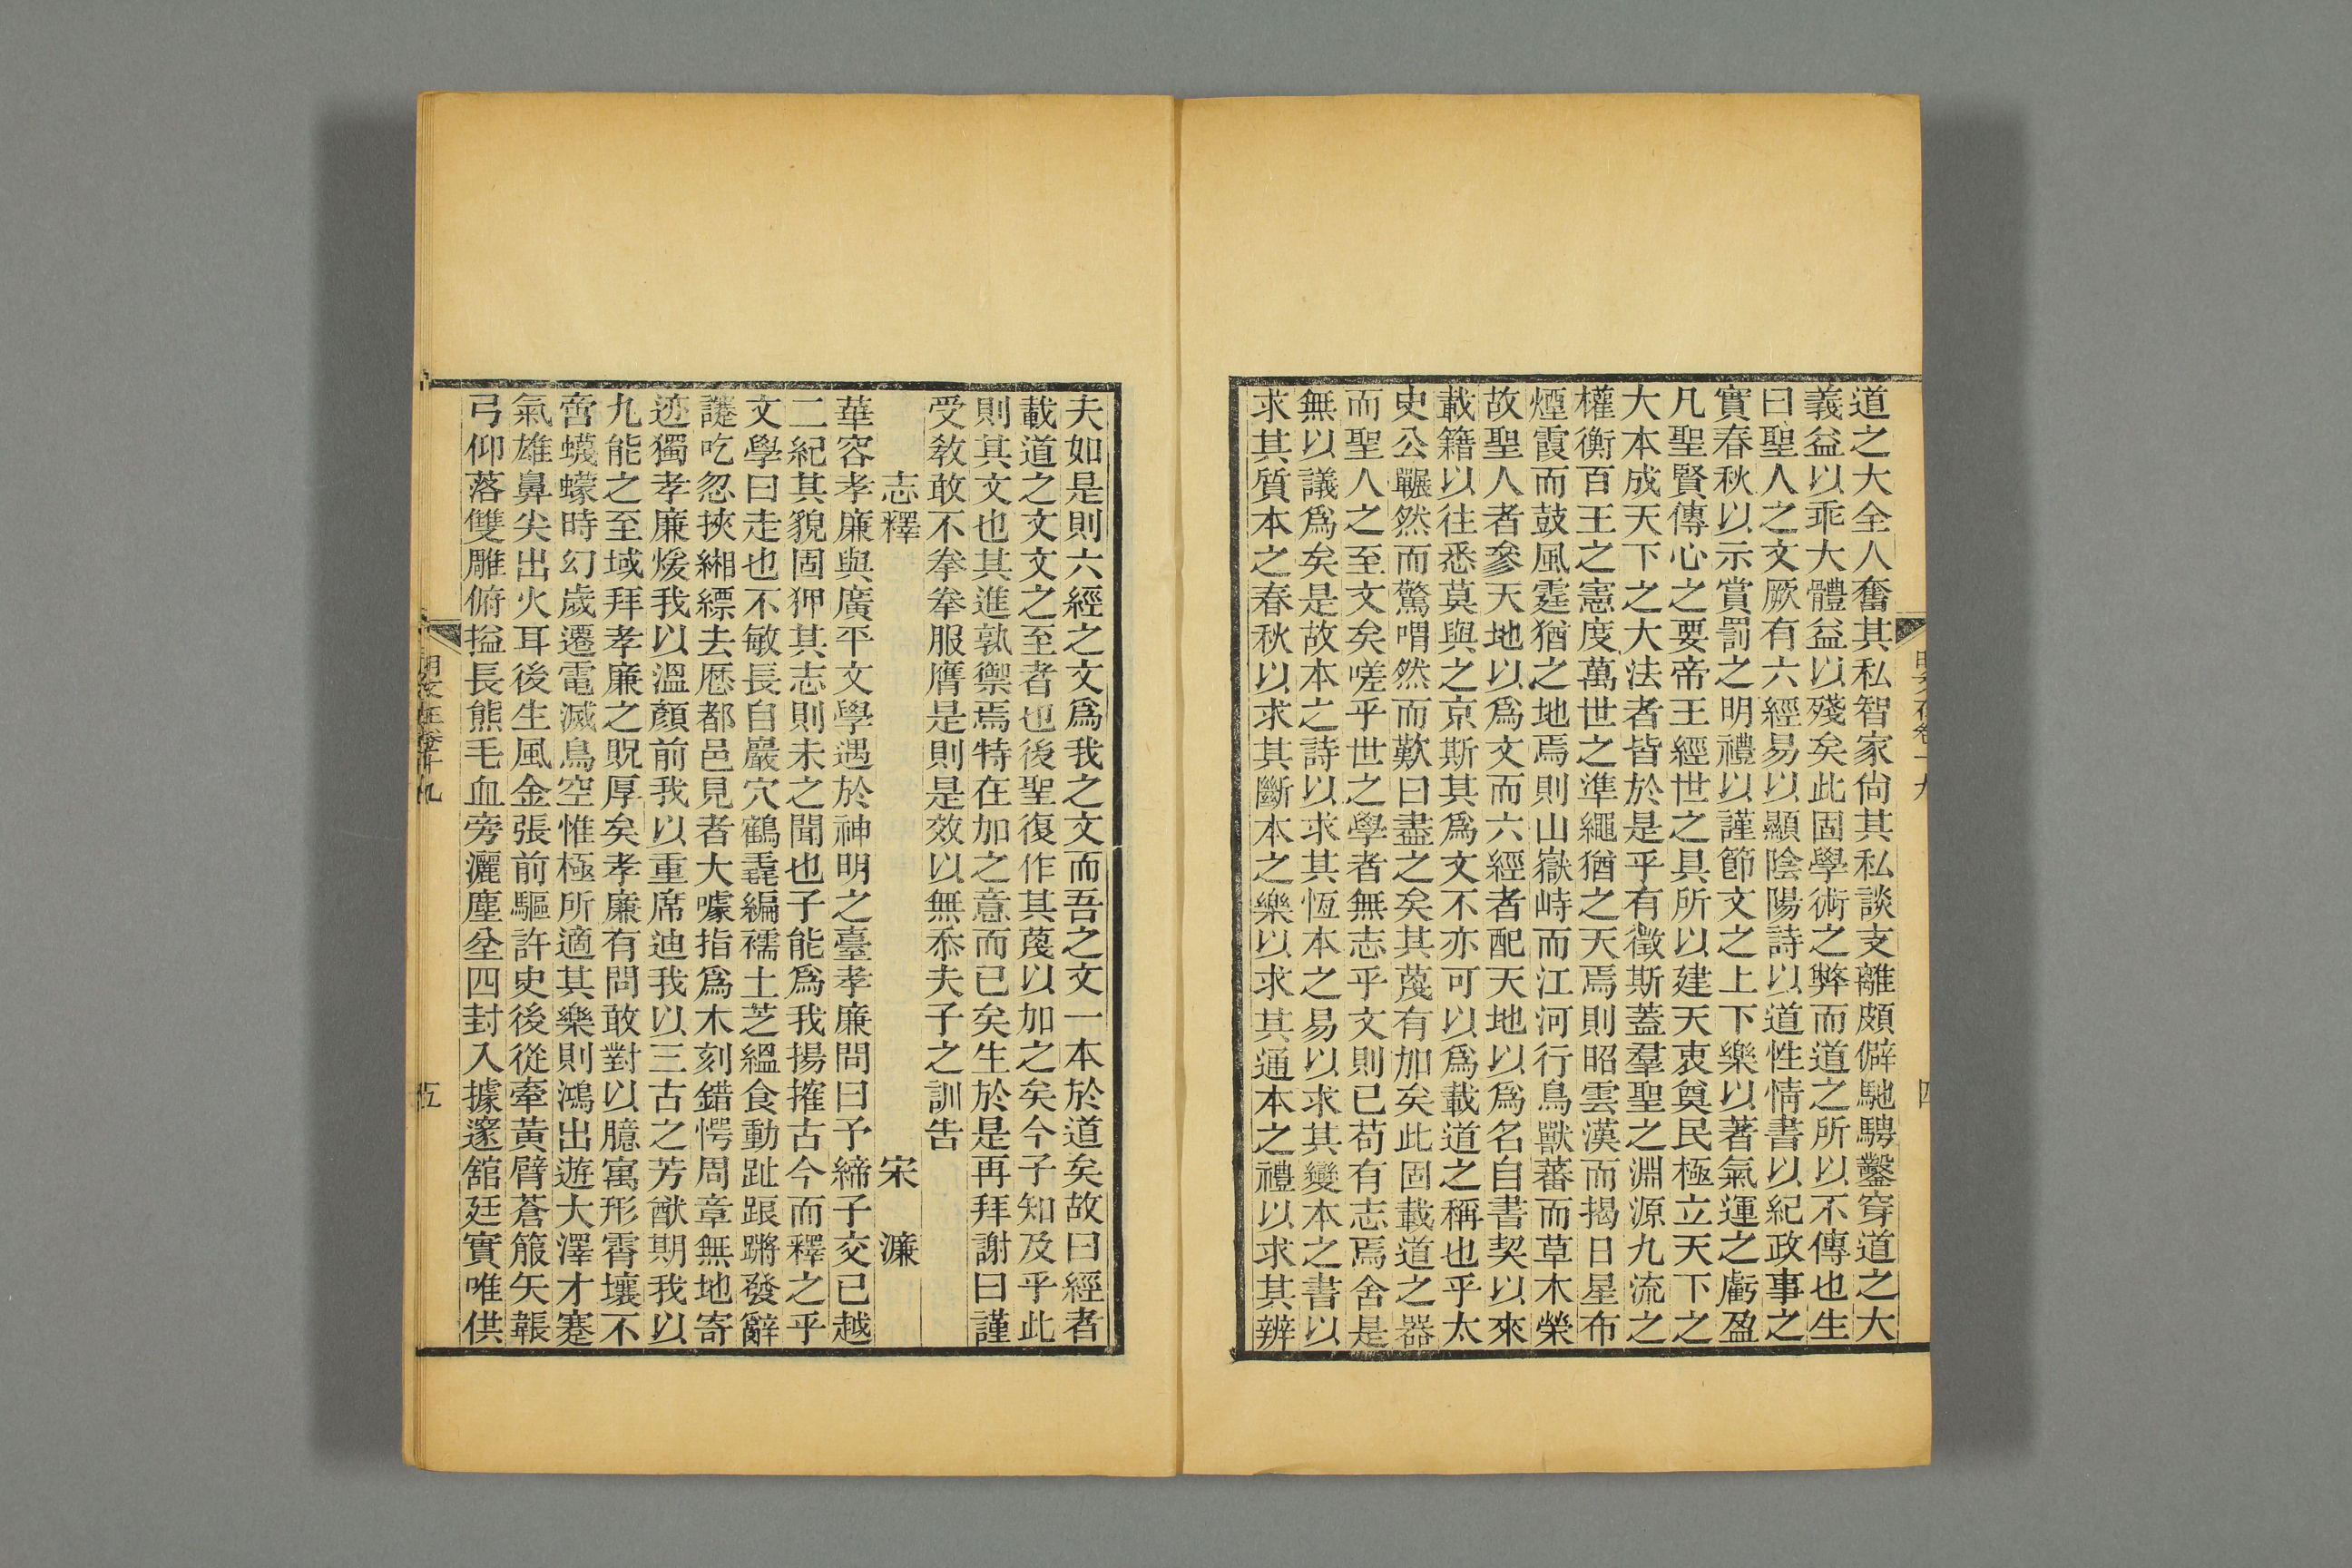 道之大全人奮其私智家尙其私談支離頗僻馳騁鑿穿道之大
義益以乖大體益以殘矣此固學術之弊而道之所以不傳也生
曰聖人之文厥有六經易以顯陰陽詩以道性情書以紀政事之
實春秋以示賞罰之明禮以謹節文之上下樂以著氣運之虧盈
凡聖賢傳心之要帝王經世之具所以建天衷奠民極立天下之
大本成天下之大法者皆於是乎有徵斯蓋羣聖之淵源九流之
權衡百王之憲度萬世之準繩猶之天焉則昭雲漢而揭日星布
煙霞而鼓風霆猶之地焉則山嶽峙而江河行鳥獸蕃而草木榮
故聖人者參天地以爲文而六經者配天地以爲名自書契以來
載籍以往悉莫與之京斯其爲文不亦可以爲載道之稱也乎太
史公囅然而驚喟然而歎曰盡之矣其蔑有加矣此固載道之器
而聖人之至文矣嗟乎世之學者無志乎文則已苟有志焉舍是
無以議爲矣是故本之詩以求其恆本之易以求其變本之書以
求其質本之春秋以求其斷本之樂以求其通本之禮以求其辨
四
夫如是則六經之文爲我之文而吾之文一本於道矣故曰經者
載道之文文之至者也後聖復作其蔑以加之矣今子知及乎此
則其文也其進孰禦焉特在加之意而已矣生於是再拜謝曰謹
受敎敢不拳拳服膺是則是效以無忝夫子之訓告
志釋 宋濂
華容孝廉與廣平文學遇於神明之臺孝廉問曰予締子交已越
二紀其貌固狎其志則未之聞也子能爲我揚搉古今而釋之乎
文學曰走也不敏長自巖穴鶴毳編襦土芝縕食動趾踉蹡發辭
謰吃忽挾緗縹去歷都邑見者大噱指爲木刻錯愕周章無地寄
迹獨孝廉煖我以溫顏前我以重席迪我以三古之芳猷期我以
九能之至域拜孝廉之貺厚矣孝廉有問敢對以臆寓形霄壤不
啻蠛蠓時幻歲遷電滅鳥空惟極所適其樂則鴻出遊大澤才蹇
氣雄鼻尖出火耳後生風金張前驅許史後從牽黃臂蒼箙矢韔
弓仰落雙雕俯搤長熊毛血旁灑塵坌四封入據邃舘廷實唯供
明文在卷十九
五